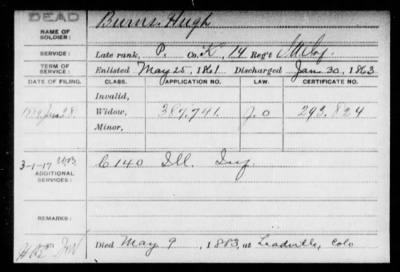 DEAD
NAME OF SOLDIER: Burns, Hugh
SERVICE: Late rank, P. Co. K, 14 Reg't Ill. Inf.
TERM OF SERVICE: Enlisted May 25, 1861 Discharged Jan. 30, 1863
DATE OF FILING. CLASS. APPLICATION NO. LAW. CERTIFICATE NO.
Invalid,
Widow, 387,741. 293,824
Minor,
3-1-17
ADDITIONAL SERVICES: C 140 Ill. Inf.
REMARKS:
Died May 9, 1883, at Leadville, Colo